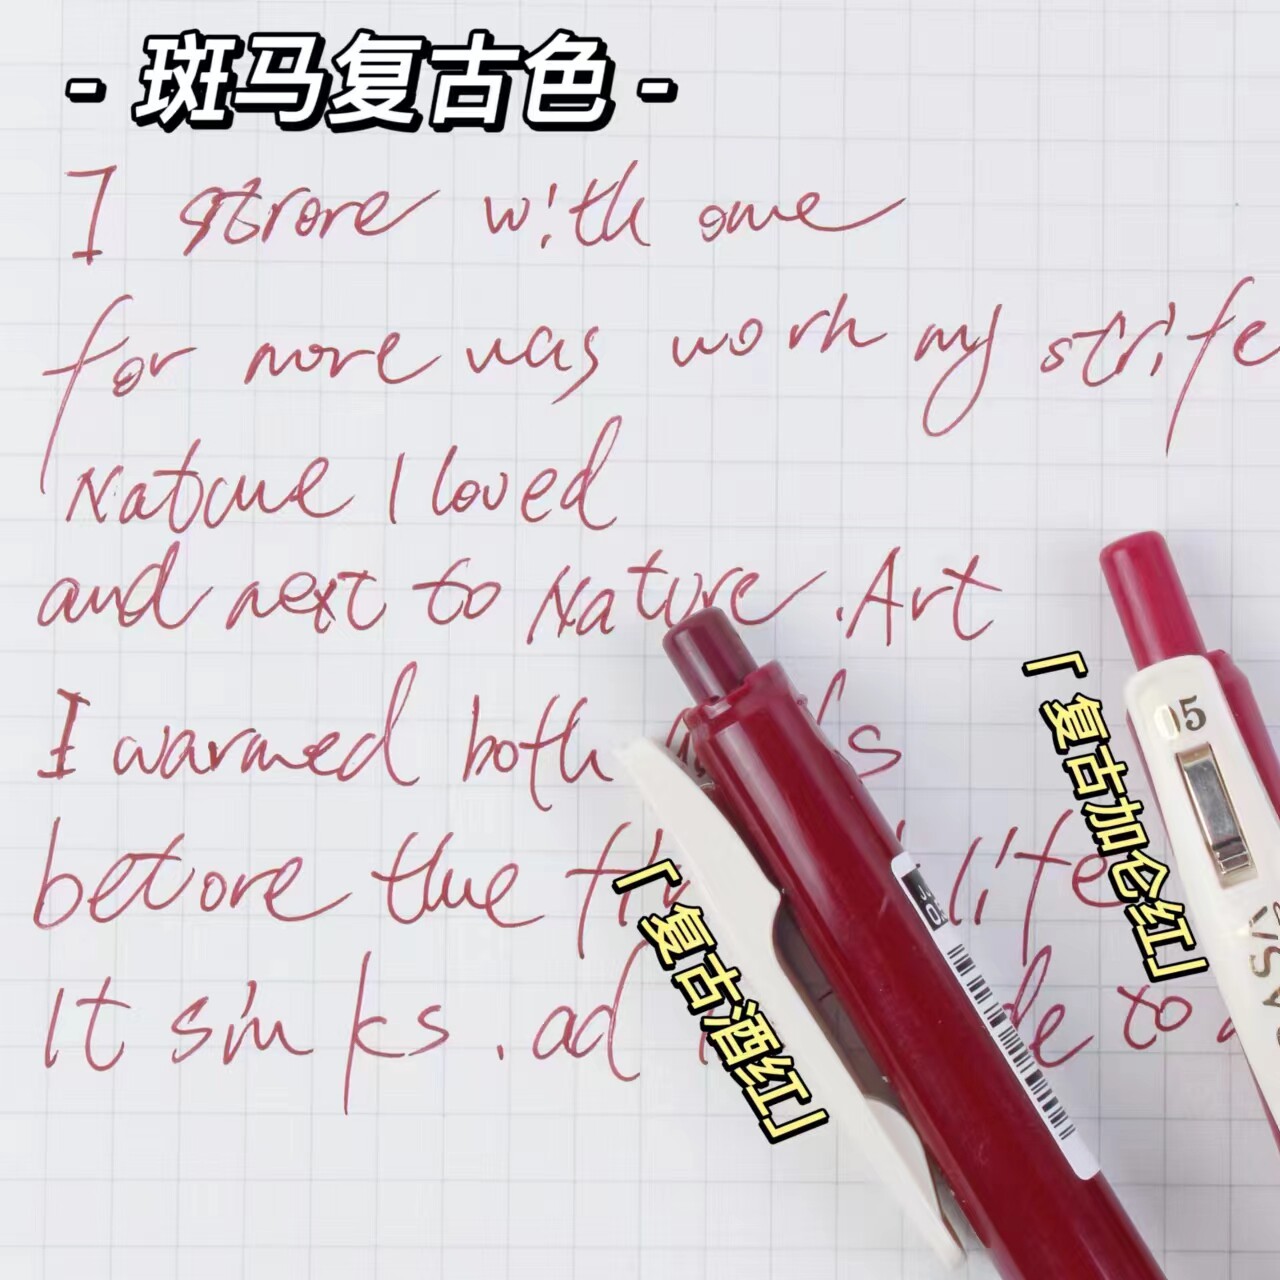 - 斑马复古色 -
I strore with one
for more was work my strife
Nature I loved
and next to Nature . Art
I warmed both
before the life
It sinks . ad to
「复古酒红」
「复古加仑红」
05